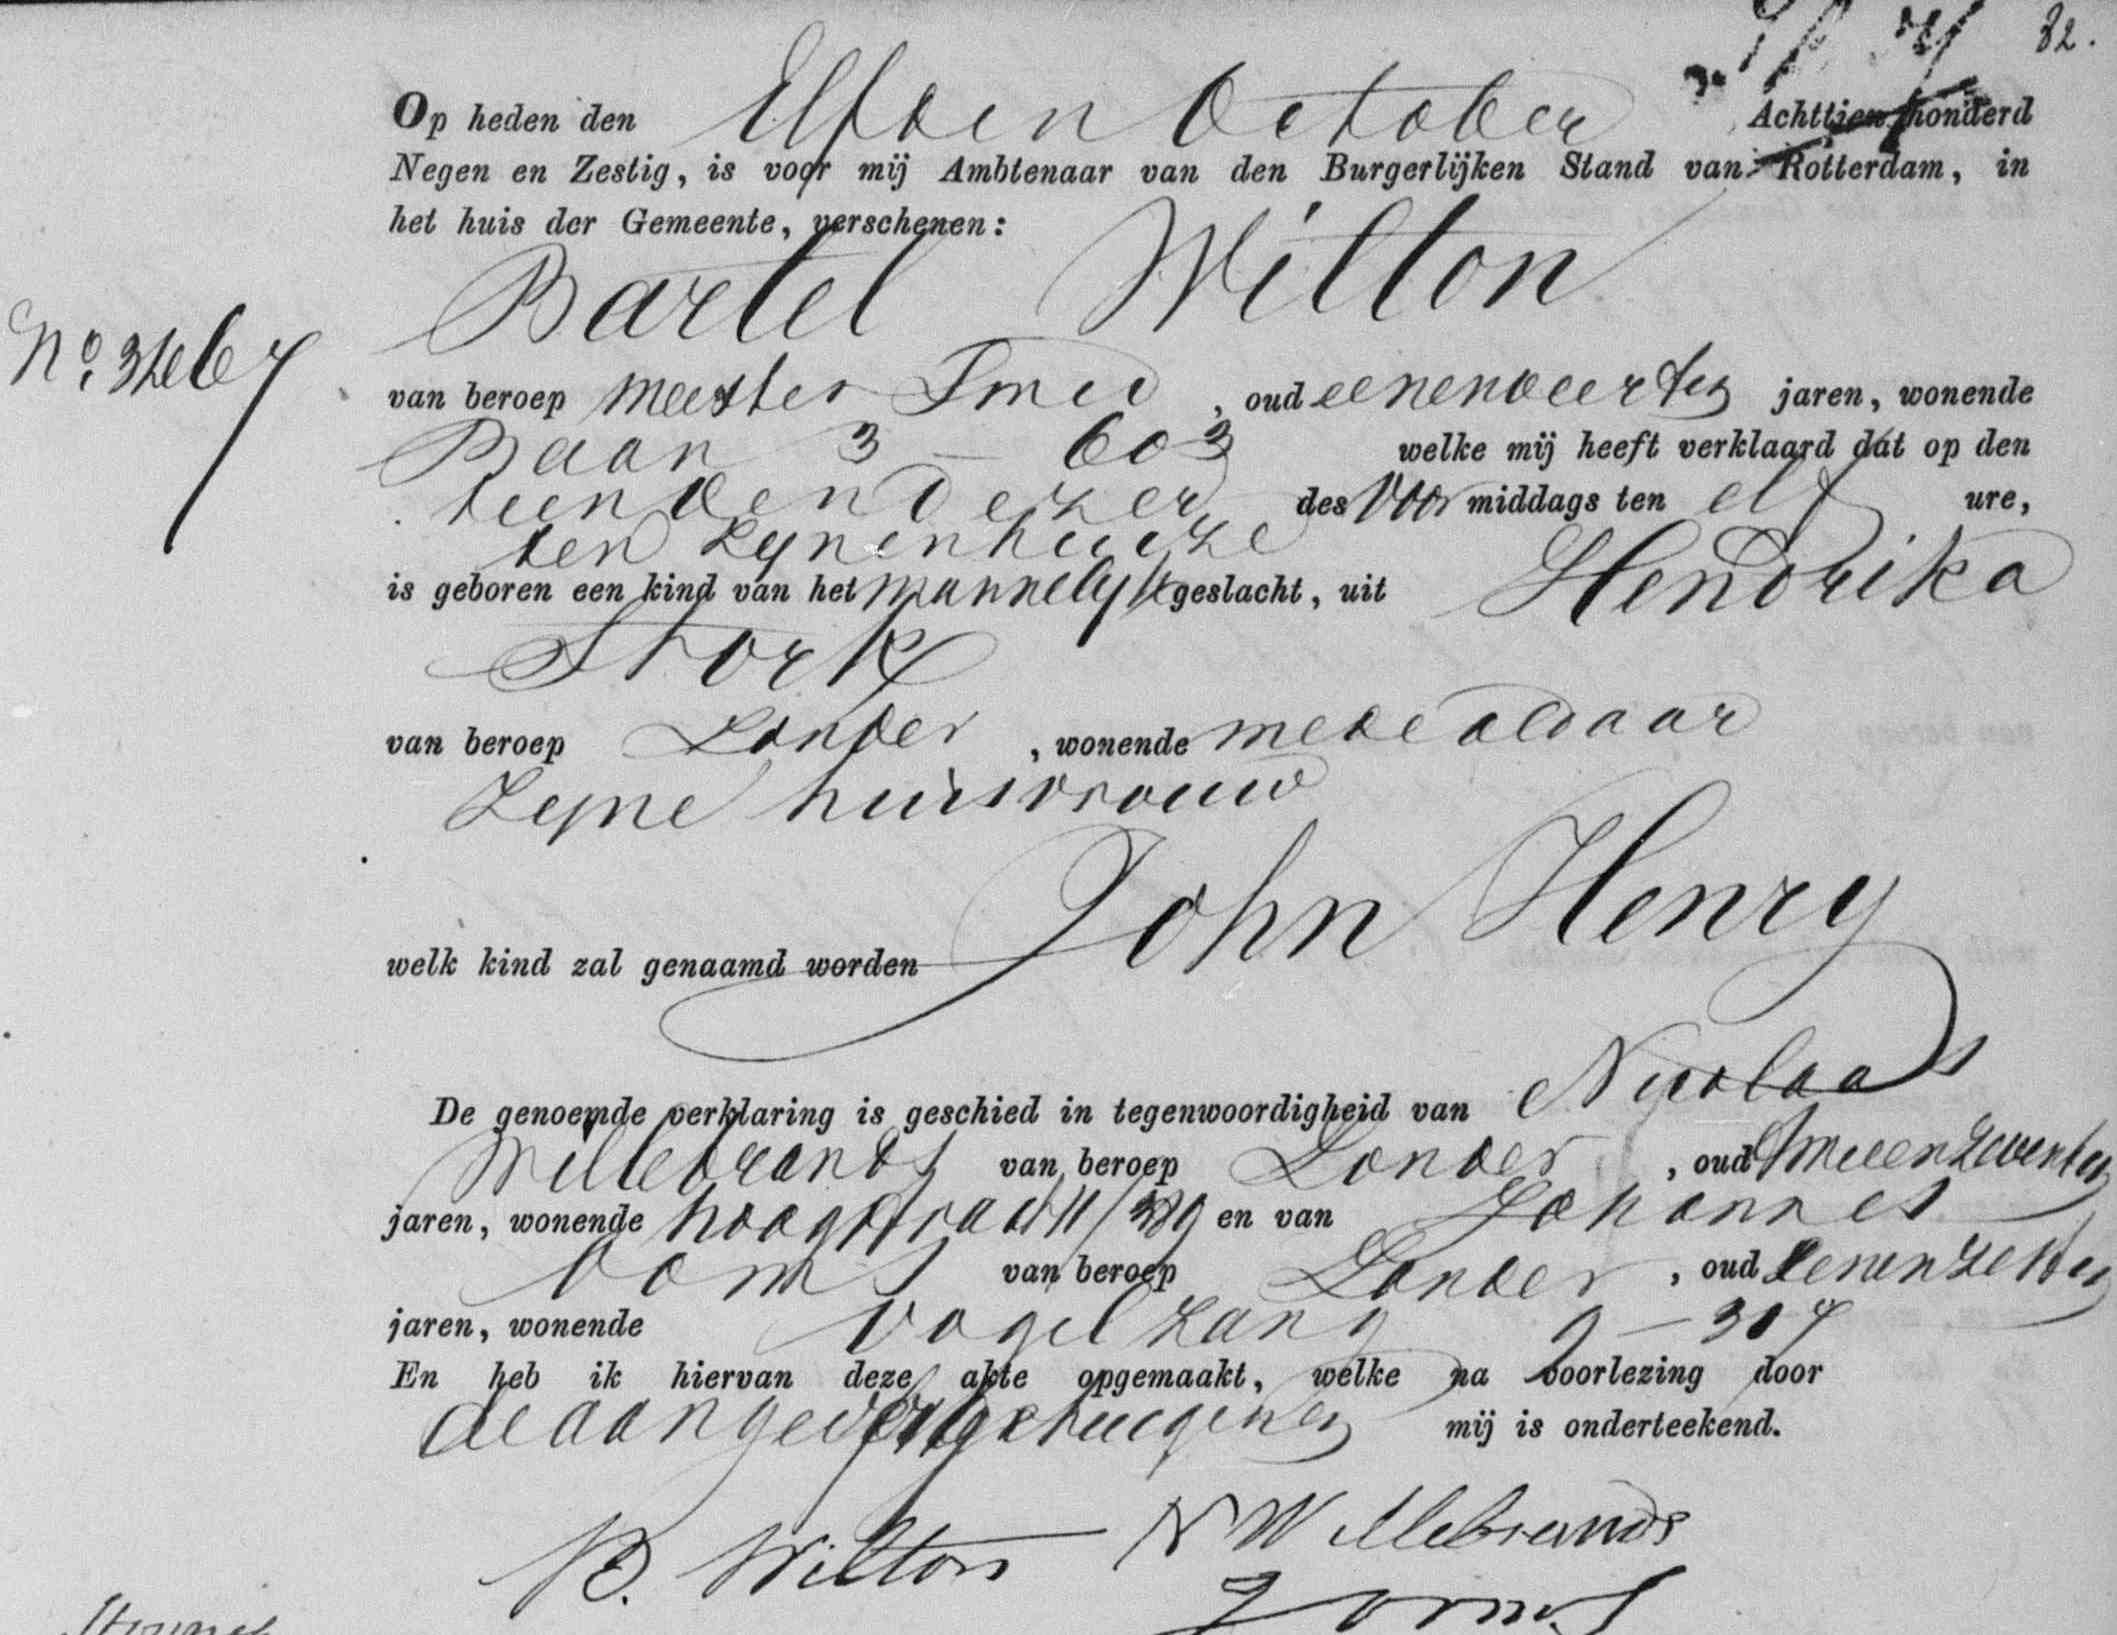 82.
Op heden den Elfden October Achttien honderd
Negen en Zestig, is voor mij Ambtenaar van den Burgerlijken Stand van Rotterdam, in
het huis der Gemeente, verschenen:
Bartel Wilton
No. 3467
van beroep meester Smid, oud eenenveertig jaren, wonende
Baan 3 – 603 welke mij heeft verklaard dat op den
tienden dezer des Voor middags ten elf ure,
ten zijnenhuize
is geboren een kind van het mannelijk geslacht, uit Hendrika
Stork
van beroep Zonder, wonende mede aldaar
Zijne huisvrouw
welk kind zal genaamd worden John Henry
De genoemde verklaring is geschied in tegenwoordigheid van Nicolaas
Willebrands van beroep Zonder, oud tweeenzeventig
jaren, wonende hoogstraat 11/389 en van Johannes
Doms van beroep Zonder, oud eenenzestig
jaren, wonende Vogelzang 9 – 307
En heb ik hiervan deze akte opgemaakt, welke na voorlezing door
de aangever getuigen en mij is onderteekend.
B. Wilton N Willebrands
J Doms